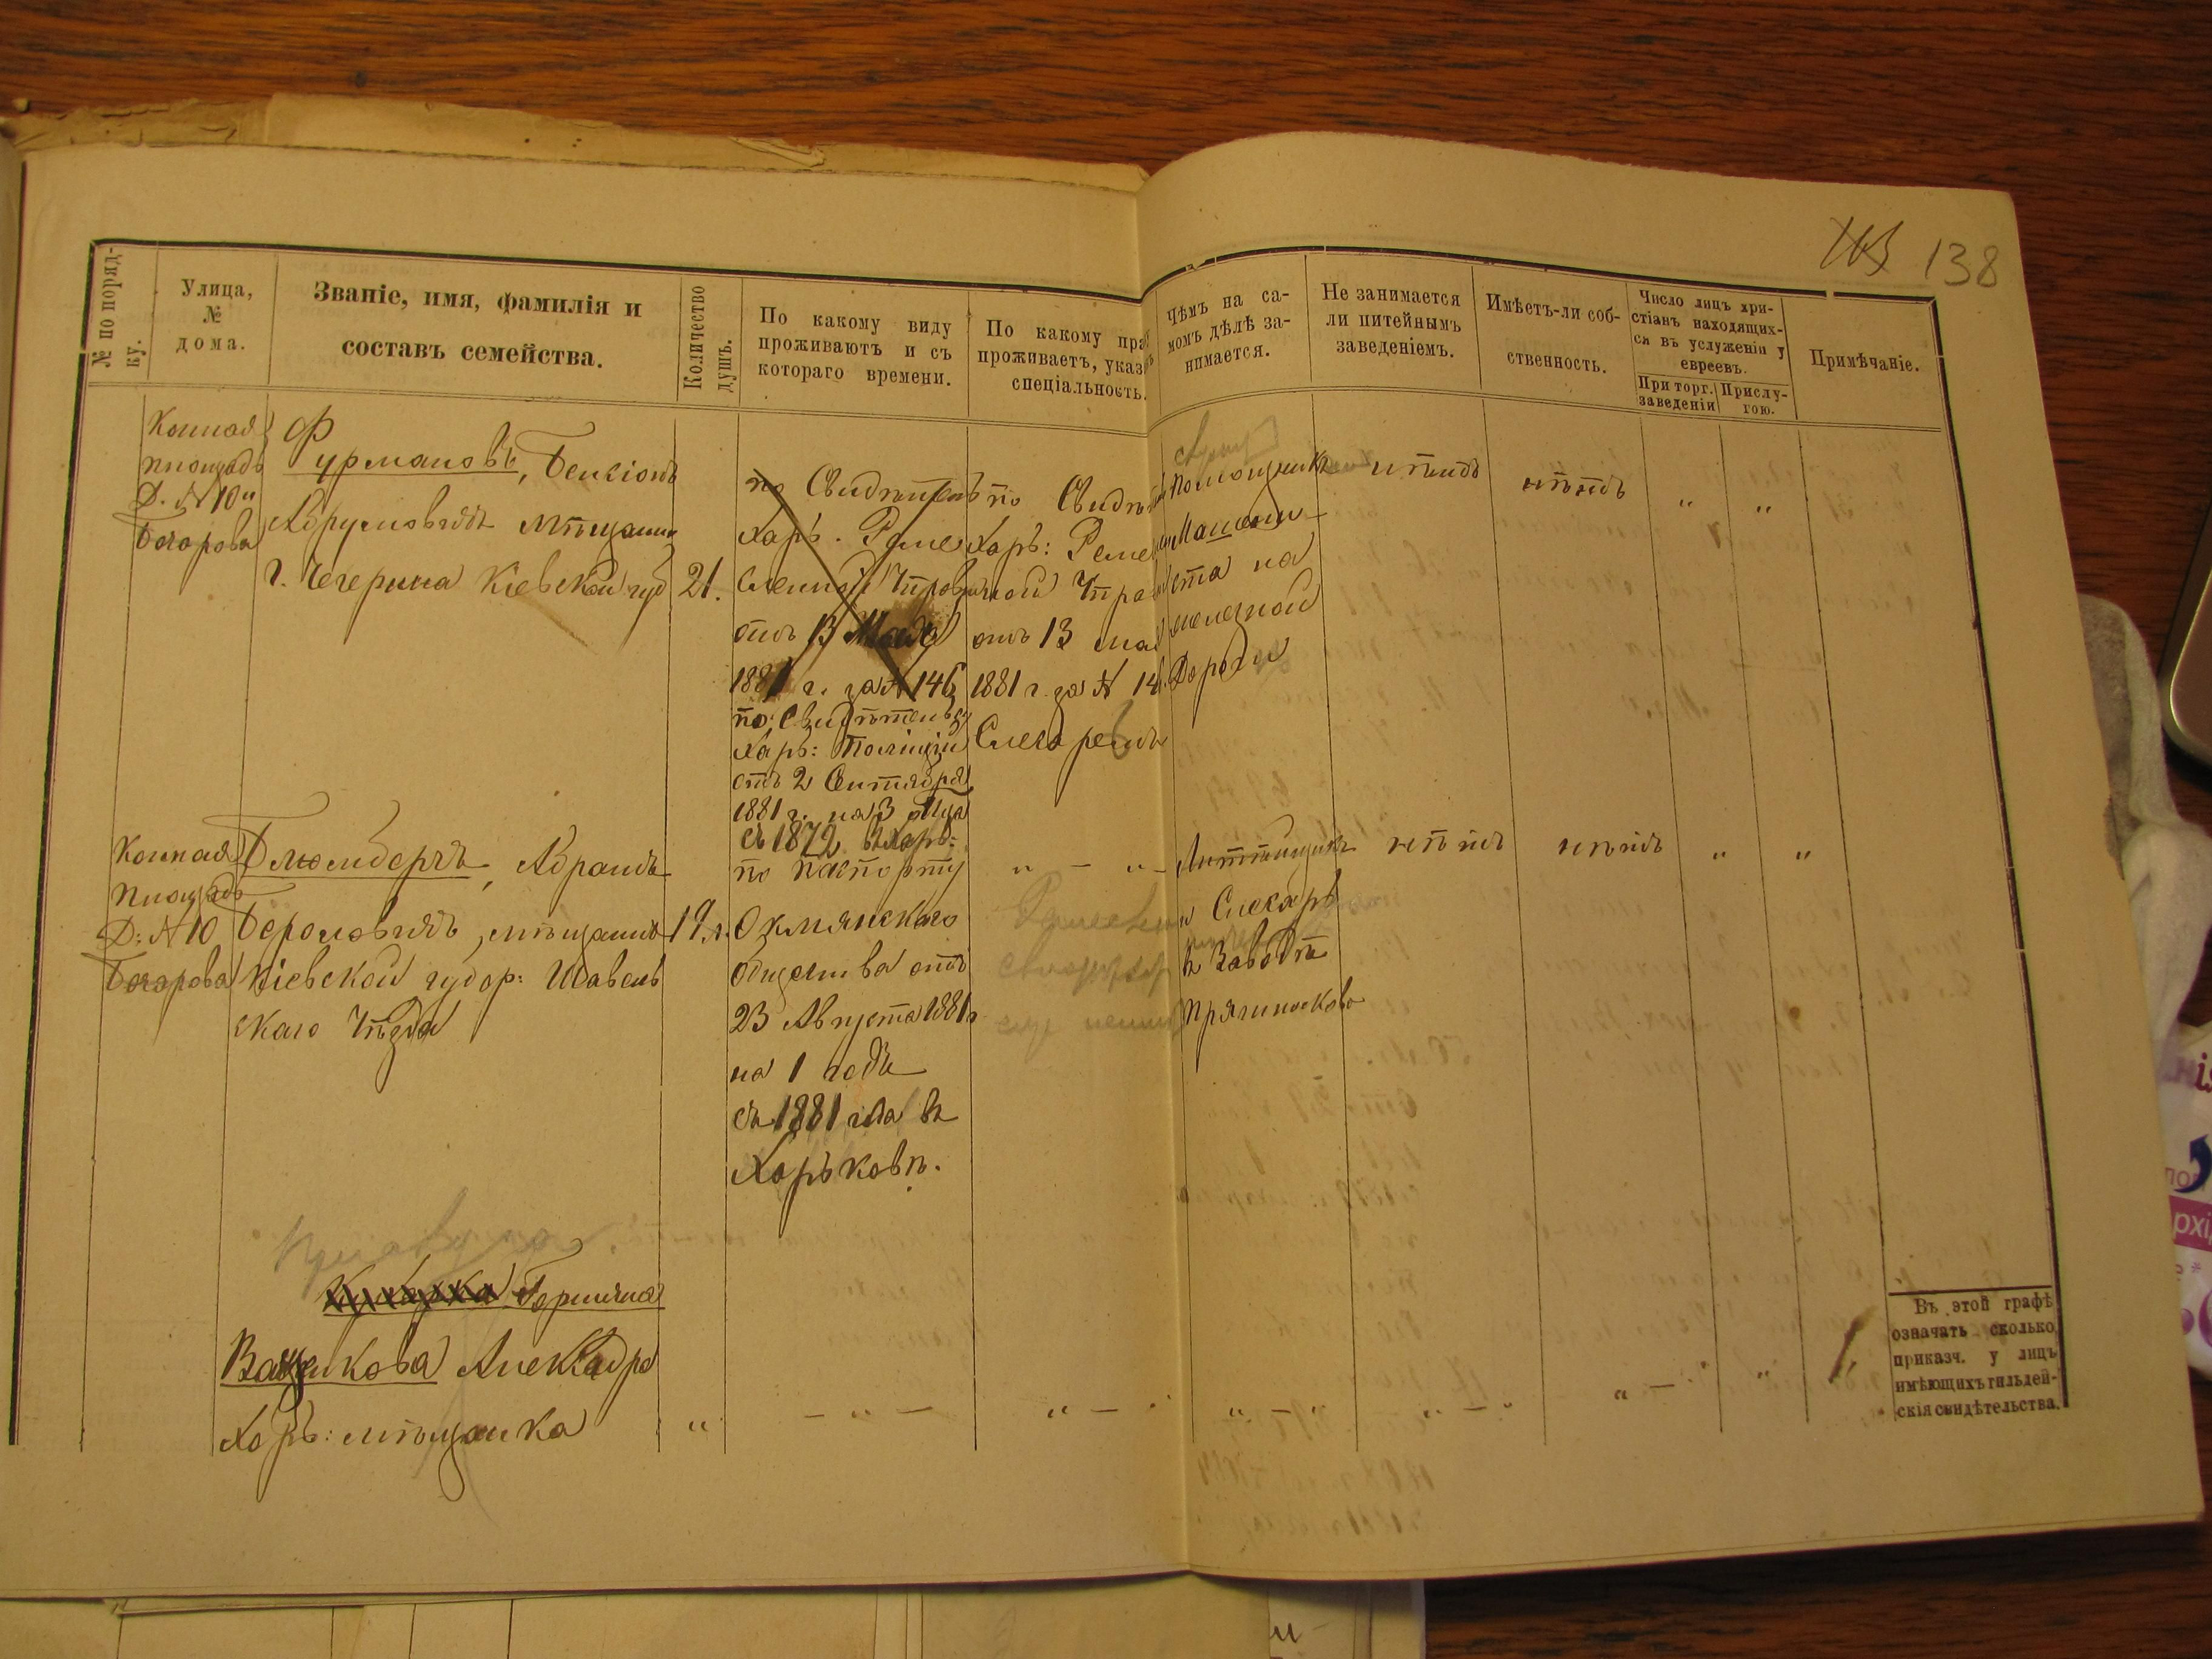 138
№ по поряд-
ку.
Улица,
№
дома.
Званіе, имя, фамилія и
составъ семейства.
Количество
душъ.
По какому виду
проживаютъ и съ
котораго времени.
По какому пра
проживаетъ, указ
спеціальность.
Чѣмъ на са-
момъ дѣлѣ за-
нимается.
Не занимается
ли питейнымъ
заведеніемъ.
Имѣетъ-ли соб-
ственность.
Число лицъ хри-
стіанъ находящих-
ся въ услуженіи у
евреевъ.
При торг.
заведеніи
Прислу-
гою.
Примѣчаніе.
Конная
площадь
Д. № 10й
Бочарова
Фурмановъ, Бенсіонъ
Абрумовичъ мѣщанин
г. Чегерина Кіевской губ
21.
по Свидѣтел
Харь. Реме
сленной Управ
отъ 13 Мая
1881 г. за № 146
по Свидѣтельсу
Харь: Полиціи
отъ 2 Сентября
1881 г. на 3 мѣца
съ 1872 въ Харь:
по Свидѣт
Харь: Реме
ной Упра
отъ 13 мая
1881 г. за № 14
Слесаремъ
Помощникъ
Машини-
ста на
железной
Дороги
нѣтъ
нѣтъ
"
"
Конная
площадь
Д: № 10
Бочарова
Блюмбергъ, Абрамъ
Беромовичъ, мѣщанинъ
Кіевской губер: Шавель
скаго Уѣзда
19 л.
по паспорту
Окмянскаго
общества отъ
23 Августа 1881 г
на 1 годъ
съ 1881 года въ
Харьковѣ.
" — "
Литейщикъ
и Слесарь
въ Заводѣ
Прягиноскаво
нѣтъ
нѣтъ
"
"
Кухарка Горничная
Ващенкова Алексадра
Харь: мѣщанка
"
— " —
" — "
" — "
" — "
" — "
"
1
Въ этой графѣ
означать сколько
приказч. у лицъ
имѣющихъ гильдей-
скія свидѣтельства.